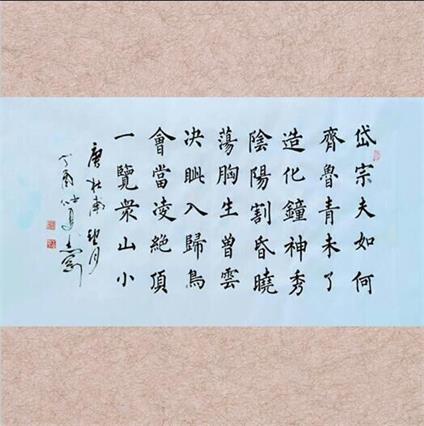 岱宗夫如何
齊魯青未了
造化鐘神秀
陰陽割昏曉
蕩胸生曾雲
决眦入歸鳥
會當凌絕頂
一覽衆山小
唐杜甫望月
丁酉仲夏